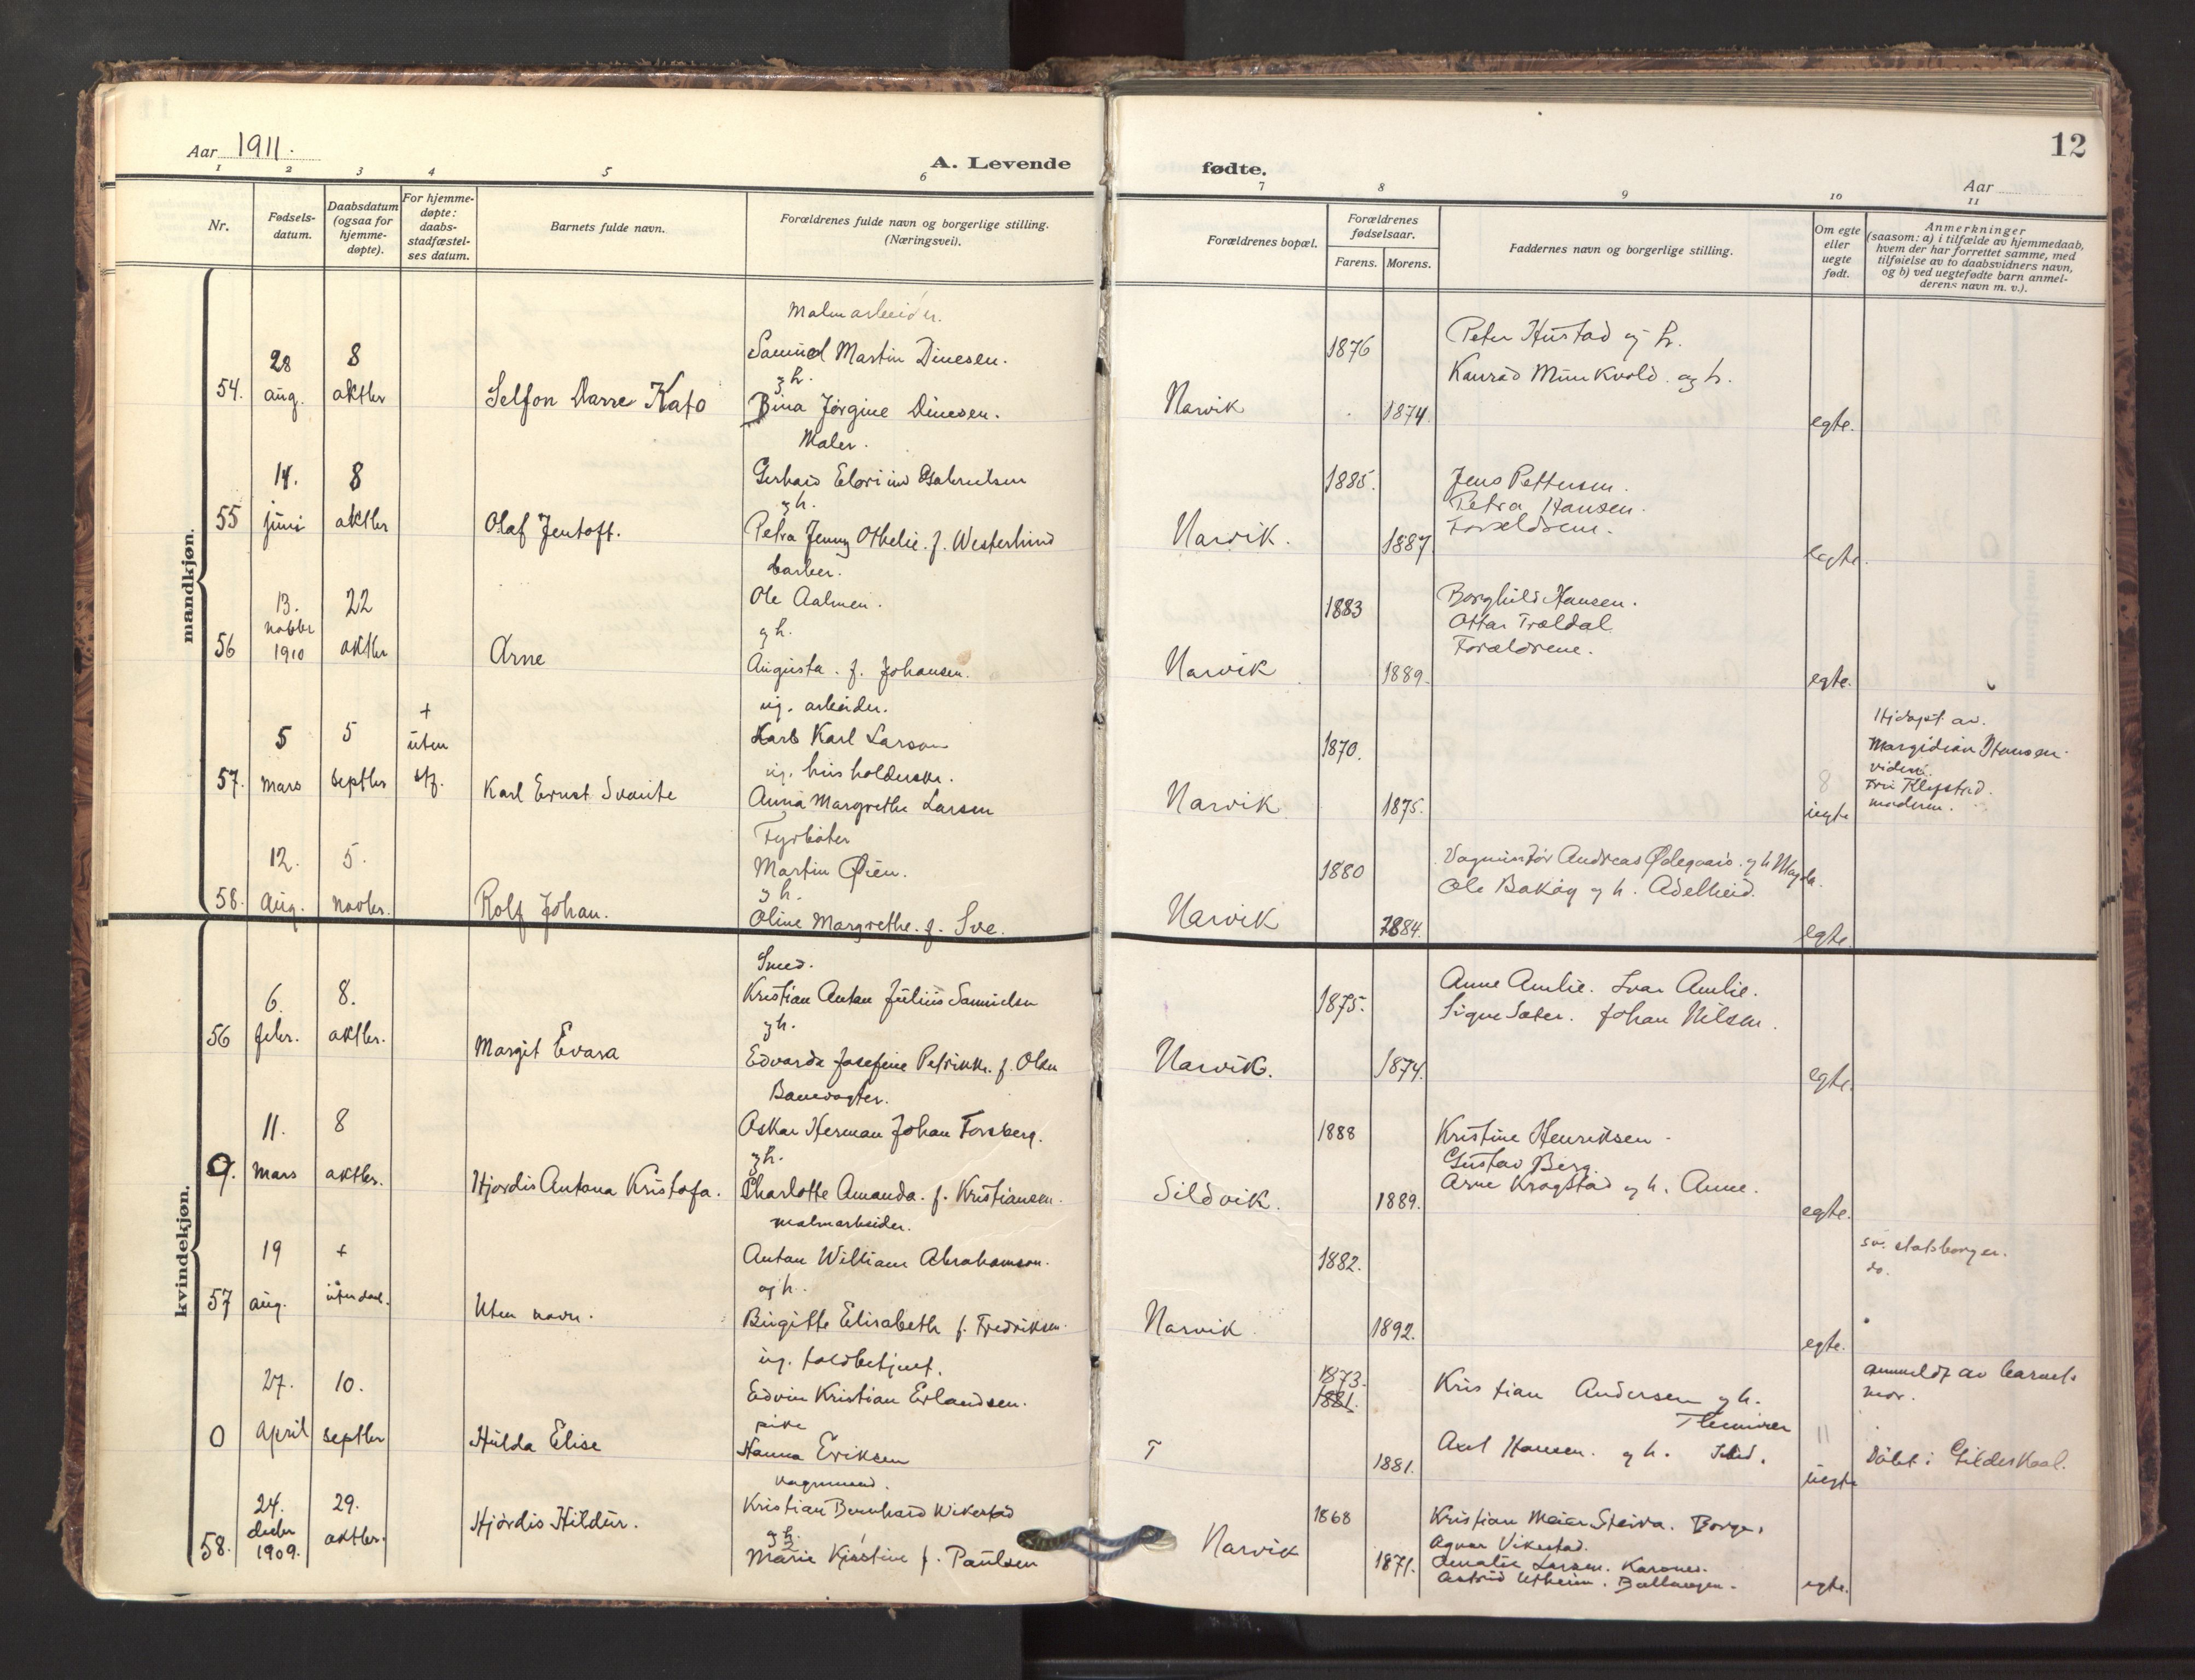 Aar 1911.
A. Levende
fødte.
12
Aar
1 2 3 4 5 6 7 8 9 10 11
Nr.
Fødsels-
datum.
Daabsdatum
(ogsaa for
hjemme-
døpte).
For hjemme-
døpte:
daabs-
stadfæstel-
ses datum.
Barnets fulde navn.
Forældrenes fulde navn og borgerlige stilling.
(Næringsvei).
Forældrenes bopæl.
Forældrenes
fødselsaar.
Farens. Morens.
Faddernes navn og borgerlige stilling.
Om egte
eller
uegte
født.
Anmerkninger
(saasom: a) i tilfælde av hjemmedaab,
hvem der har forrettet samme, med
tilføielse av to daabsvidners navn,
og b) ved uegtefødte barn anmel-
derens navn m. v.).
mandkjøn.
Malmarbeider.
28 8 Samuel Martin Dinesen. 1876 Peter Hustad og h.
og h. Konrad Munkvold og h.
54. aug. oktbr Selfon Darre Kato Bina Jørgine Dinesen. Narvik 1874. egte.
Maler.
14. 8 Gerhard 1885. Jens Pettersen.
og h. Petra Hansen.
55 juni oktbr Olaf Jentoft. Petra Jenny Othelie. f. Westerlund Narvik. 1887 Forældrene. egte.
barber.
13. 22 Ole Aalmen. 1883 Borghild Hansen.
novbr og h. Ottar Trældal
56 1910 oktbr Arne Augusta. f. Johansen. Narvik 1889. Forældrene. egte.
+ ug. arbeider. Hjdøpt av.
5 5 uten Karl Larson 1870. Margidian Hansen.
ug. husholderske. vidne.
57. mars septbr stf. Karl Ernst Svante Anna Margrethe Larsen Narvik 1875. 8 uegte moderen.
Fyrbøter
12. 5. Martin Øien. 1880 Andreas Ødegaard. og h Magda.
og h. Ole Bakøy og h. Adelheid.
58. aug. novbr. Rolf Johan. Oline Margrethe. f. Sve. Narvik 1884. egte.
kvindekjøn.
Smed.
6. 8. Kristian Anton Julius Samuelsen 1875. Anne Amlie. Ivar Amlie.
og h. Signe Sæter. Johan Nilsen.
56 febr. oktbr. Margit Evara Edvarda Josefine Petrikke. f. Olsen Narvik. 1874. egte.
Banevogter.
11. 8 Oskar Herman Johan Forsberg. 1888 Kristine Henriksen.
og h. Gustav Berg.
0. mars oktbr. Hjordis Antona Kristofa. Charlotte Amanda. f. Kristiansen. Sildvik. 1889. Arne Krogstad og h. Anne. egte.
malmarbeider.
19 + Anton William Abrahamson. 1882. sv. statsborger.
og h. do.
57 aug. uten daab. Uten navn. Birgitte Elisabeth f. Fredriksen. Narvik. 1892. egte.
ug. toldbetjent. 1873. anmeldt av barnets
27. 10. Edvin Kristian Erlandsen. 1881. Kristian Andersen og h. mor.
pike
0 april septbr Hulda Elise Hanna Eriksen T 1881. Axel Hansen. og h. 11 uegte Døbt i Gildeskaal.
vognmand.
24. 29. Kristian Bernhard Wikestad 1868 Kristian Meier Steiro.
decbr og h. Agnar Vikestad.
58. 1909. oktbr. Hjørdis Hildur. Marie Kjerstine f. Paulsen Narvik 1871. Amalie Larsen.
Astrid Utheim. Ballangen. egte.